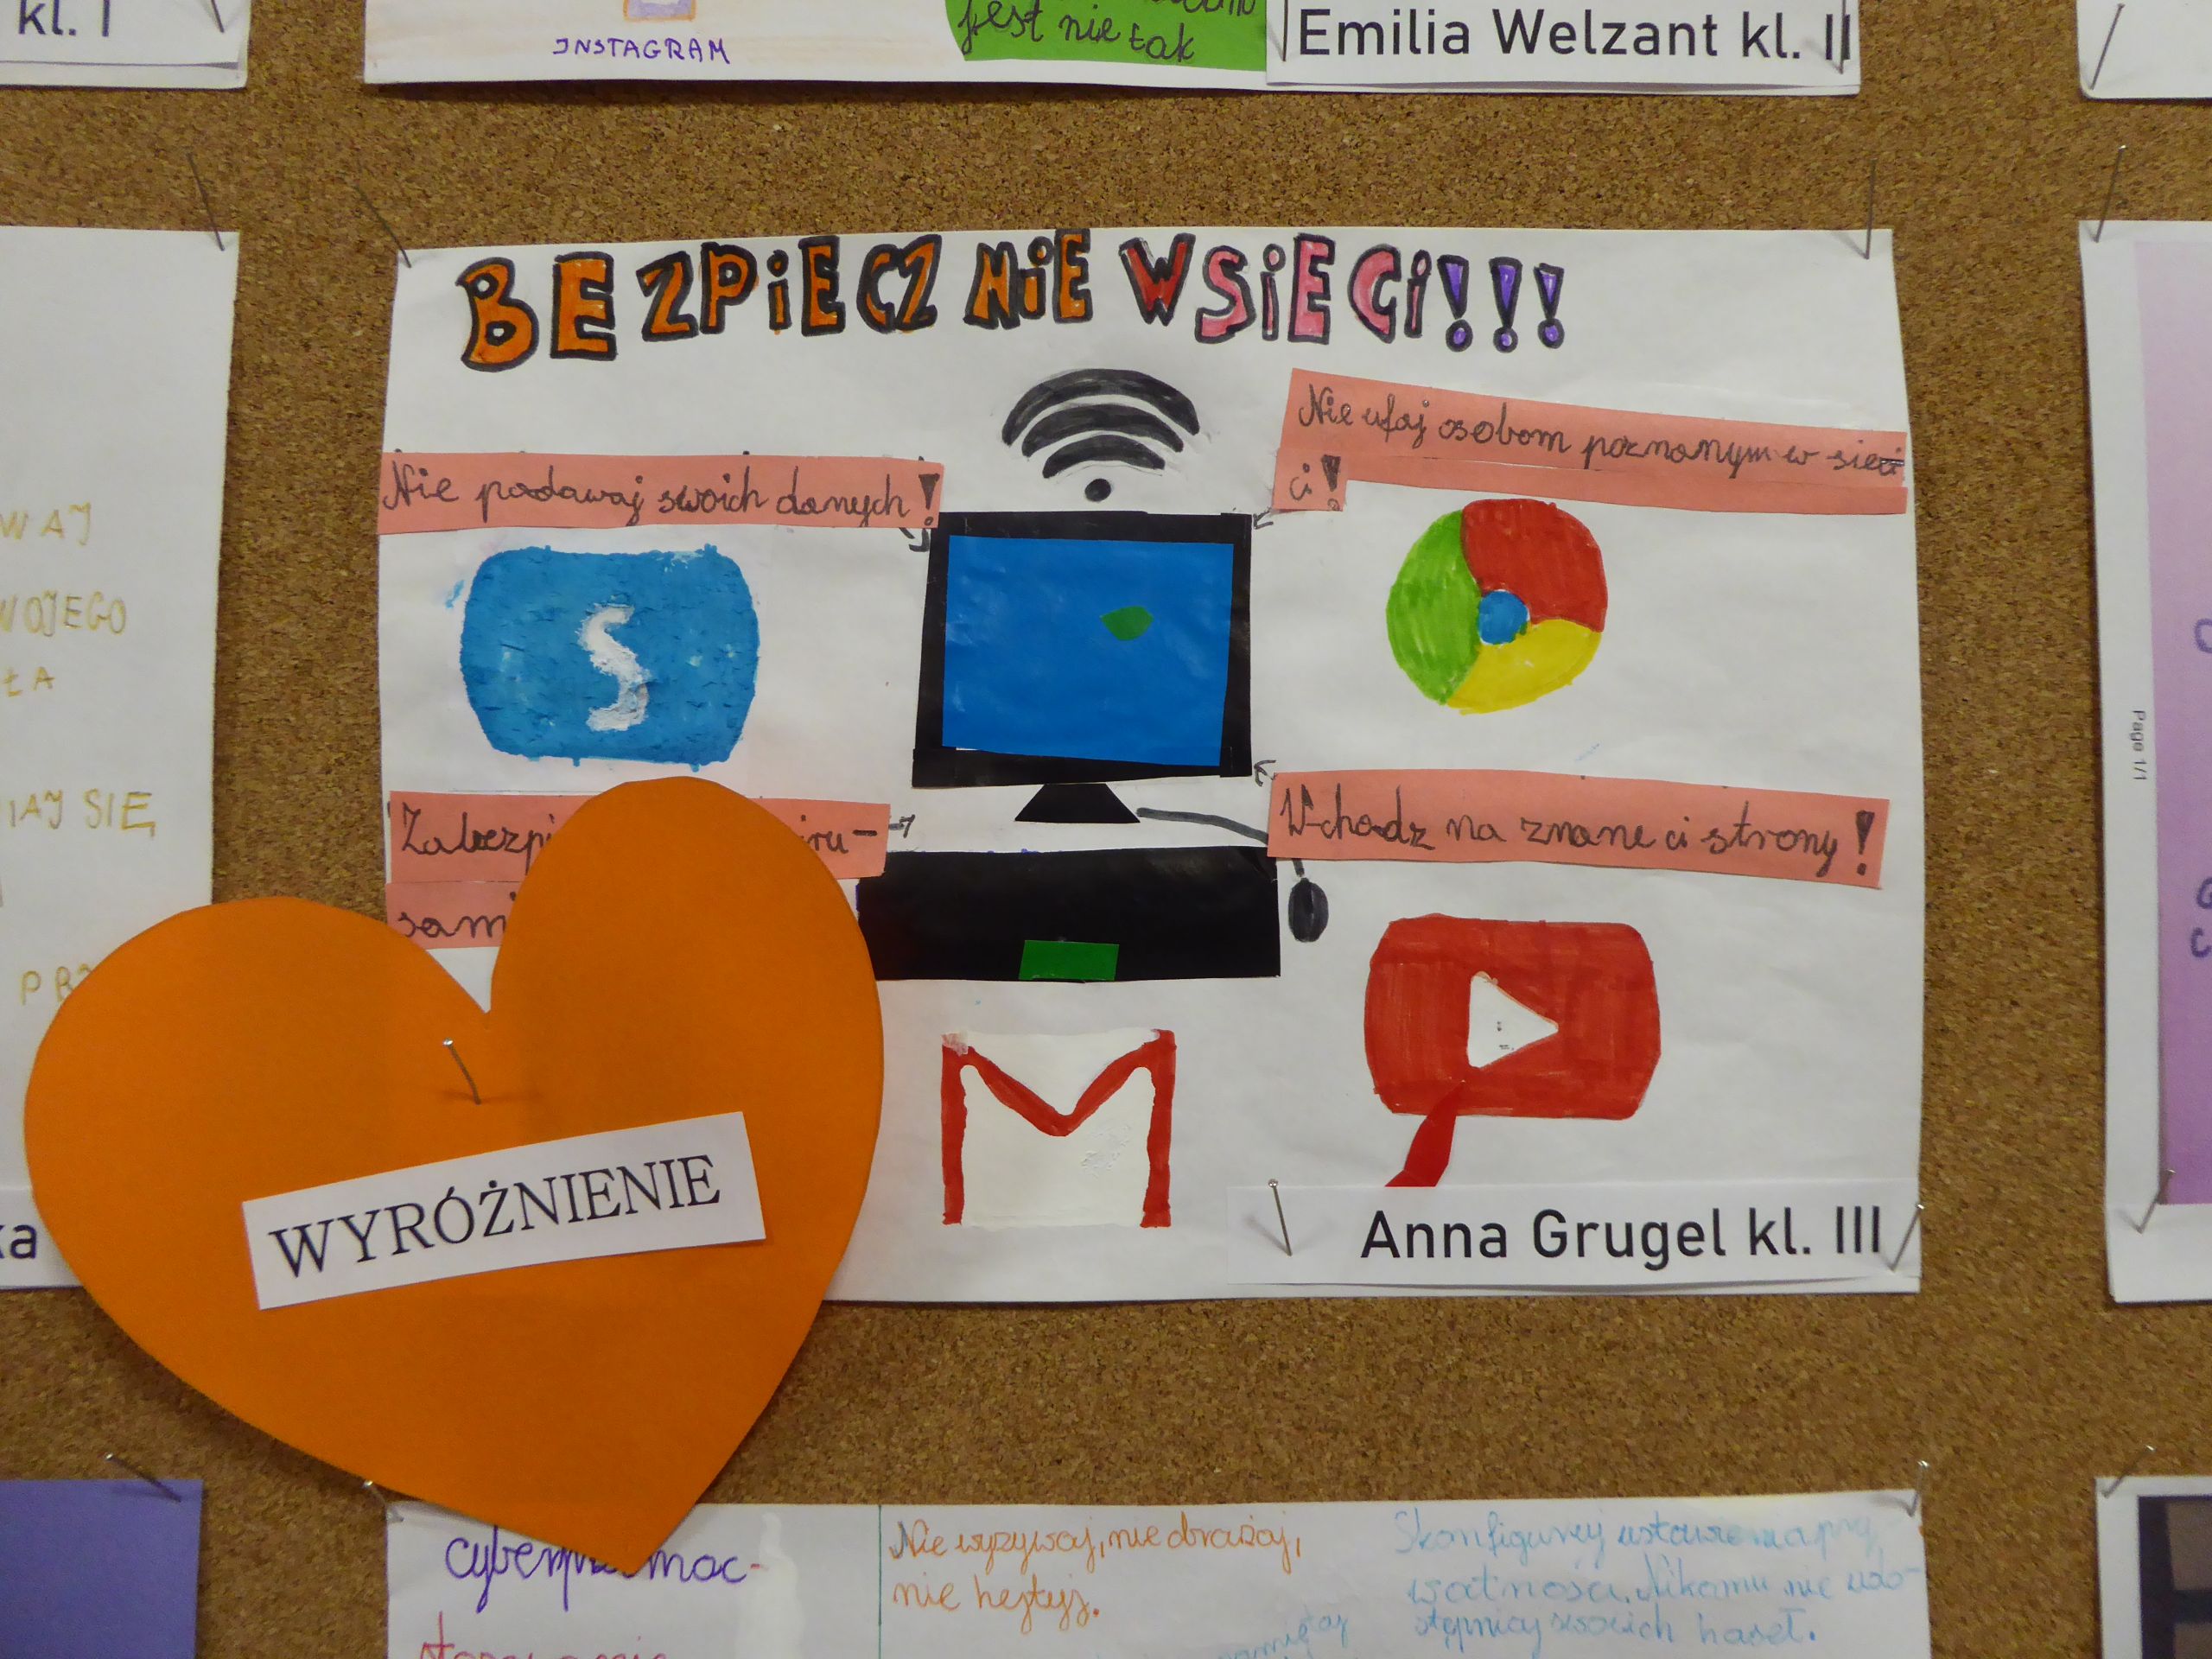 kl. I
INSTAGRAM
jest nie tak
Emilia Welzant kl. II
BEZPIECZNIE W SIECI!!!
Nie podawaj swoich danych!
Nie ufaj osobom poznanym w sieci
ci!
S
Wchodz na znane ci strony!
WYRÓŻNIENIE
Anna Grugel kl. III
WAJ
WOJEGO
ŁA
IAJ SIĘ
ka
Page 1/1
Nie wyzywaj, nie obrażaj,
nie hejtyj.
Skonfiguruj ustawienia pry
watności. Nikomu nie udo-
stępniaj swoich haseł.